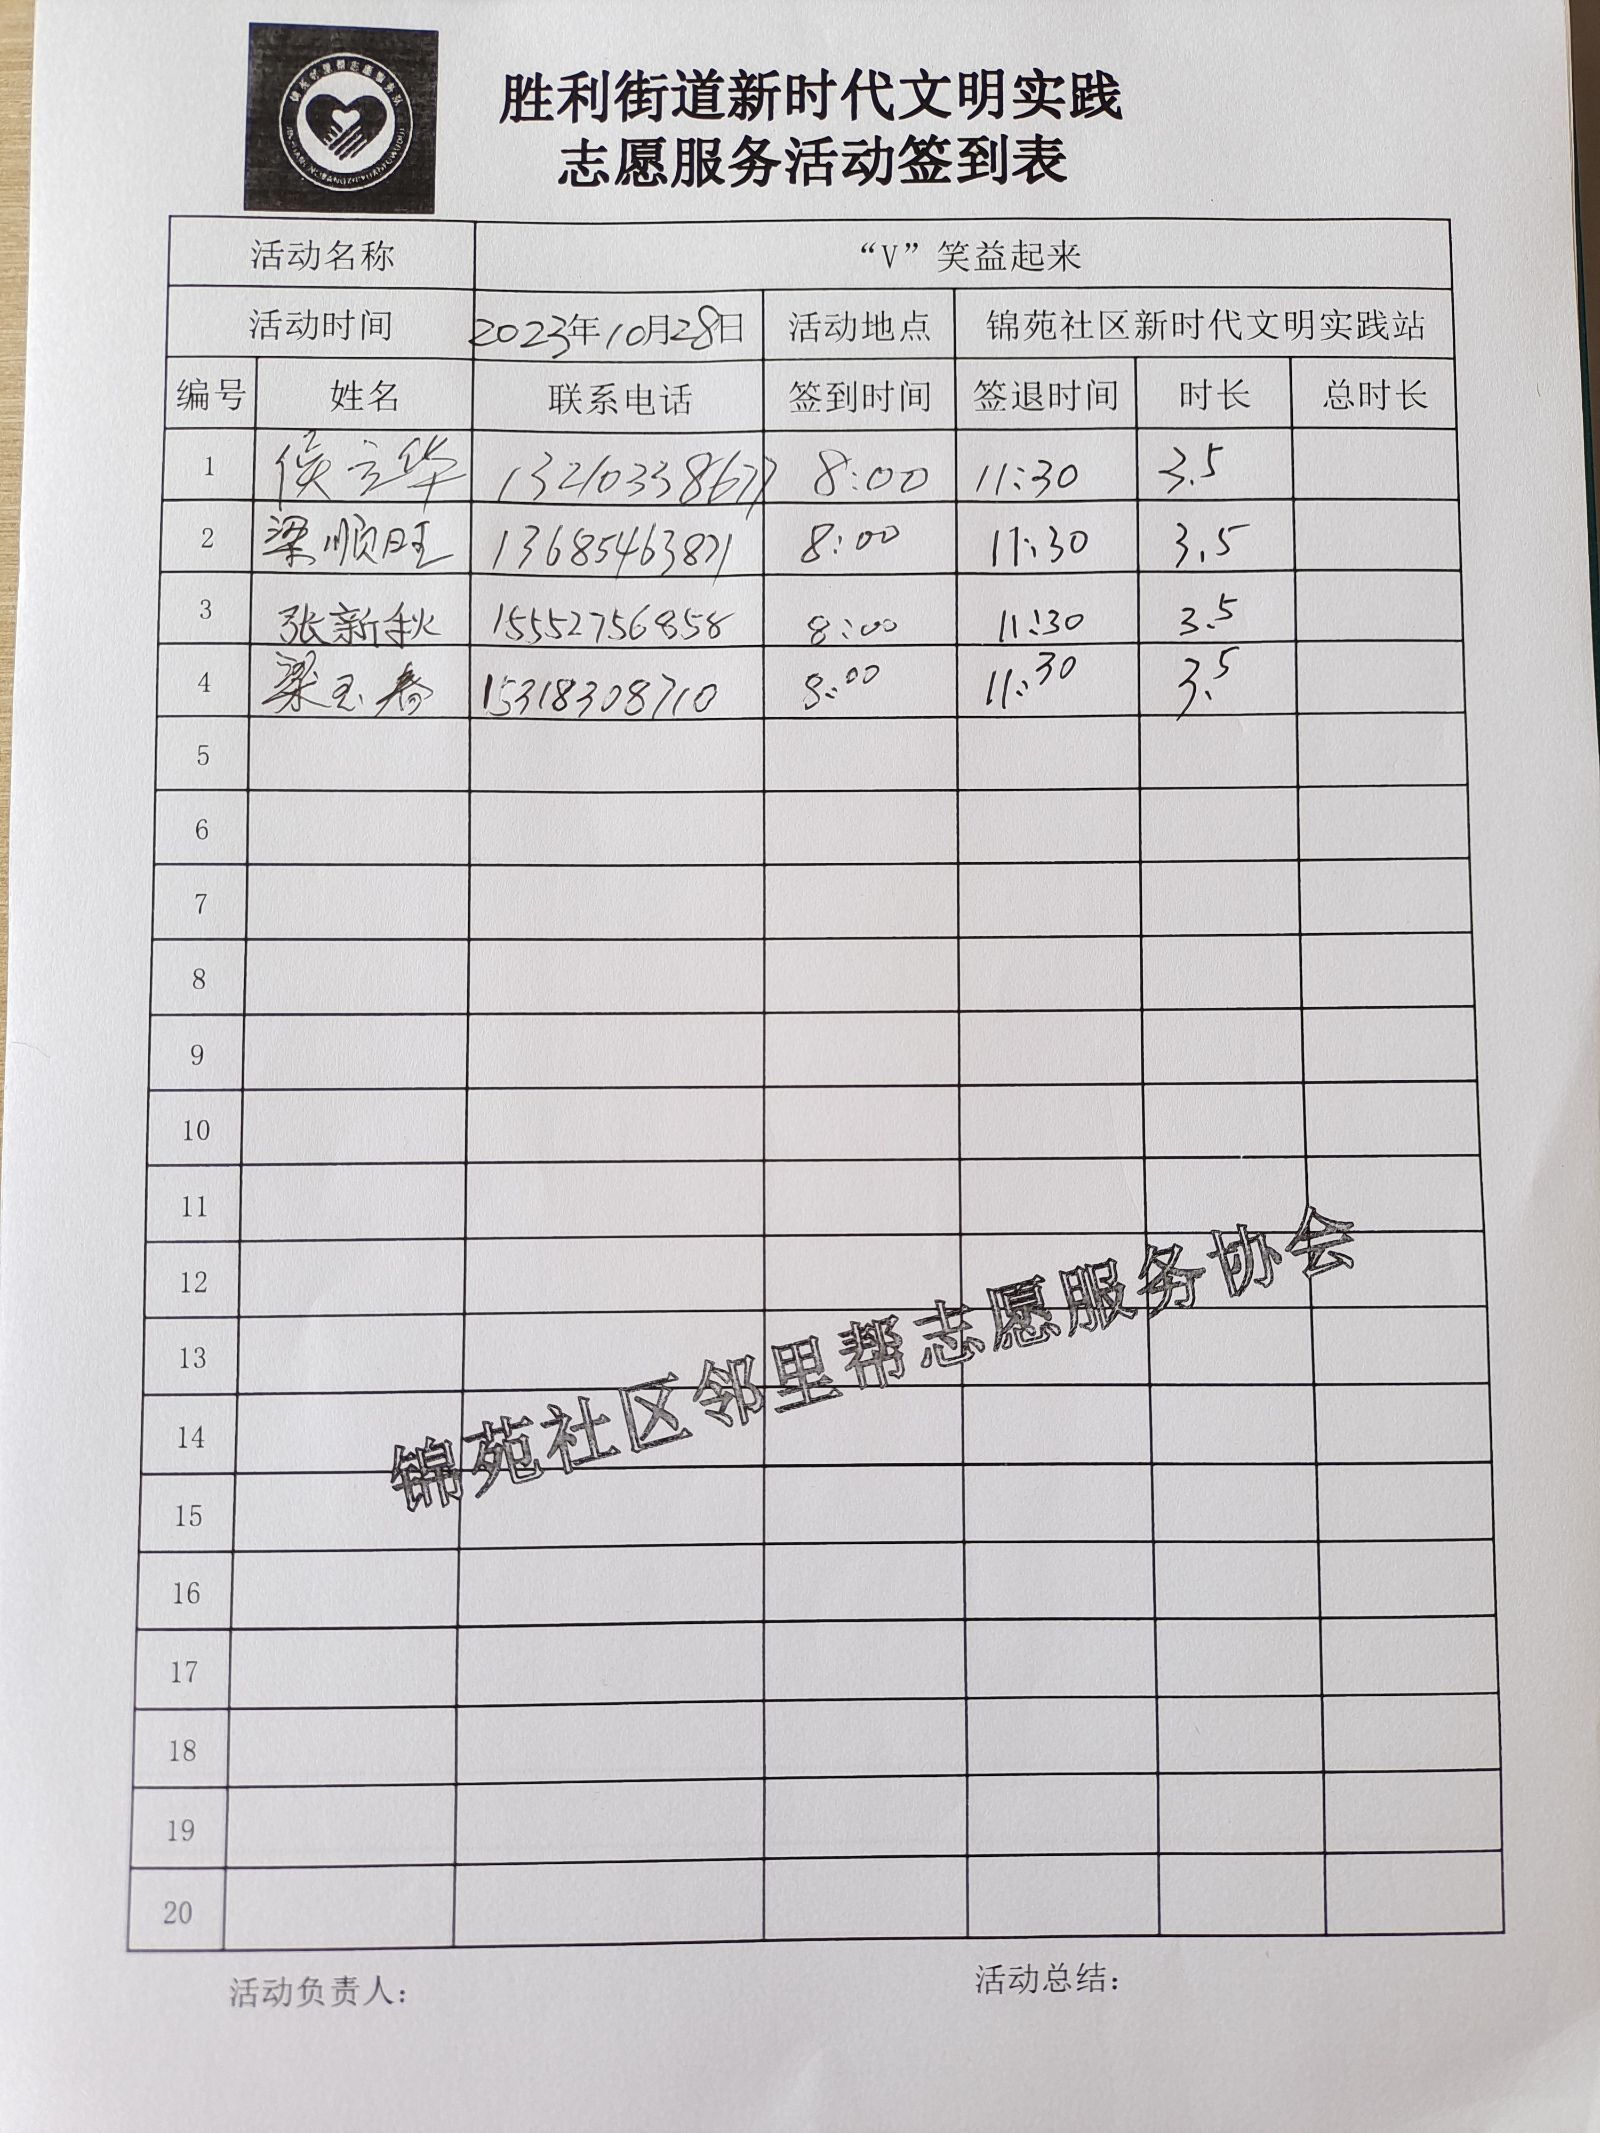 锦苑邻里帮志愿服务队
胜利街道新时代文明实践
志愿服务活动签到表
活动名称 “V”笑益起来
活动时间 2023年10月28日 活动地点 锦苑社区新时代文明实践站
编号 姓名 联系电话 签到时间 签退时间 时长 总时长
1 侯立华 13210338677 8:00 11:30 3.5
2 梁顺旺 13685463871 8:00 11:30 3.5
3 张新秋 15552756858 8:00 11:30 3.5
4 梁玉春 15318308710 8:00 11:30 3.5
5
6
7
8
9
10
11
12
13
14
15
16
17
18
19
20
锦苑社区邻里帮志愿服务协会
活动负责人： 活动总结：